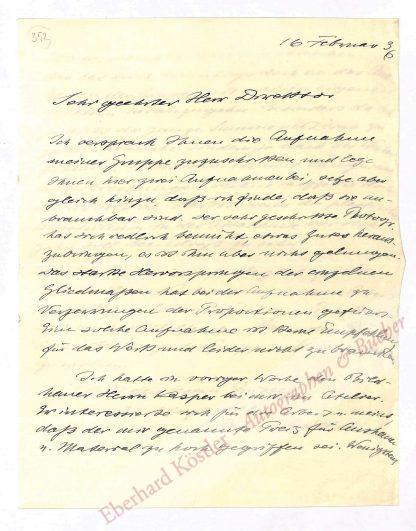 353
16 Februar 3/6
Sehr geehrter Herr Direktor
Ich versprach Ihnen die Aufnahme
meiner Gruppe zuzuschicken und lege
Ihnen hier zwei Aufnahmen bei, setze aber
gleich hinzu, daß ich finde, daß sie un-
brauchbar sind. Der sehr geschickte Photogr.
hat sich redlich bemüht, etwas Gutes heraus-
zubringen, es ist ihm aber nicht gelungen.
Das starke Hervorspringen der einzelnen
Gliedmaßen hat bei der Aufnahme zu
Verzerrungen der Proportionen geführt.
Eine solche Aufnahme ist keine Empfehlung
für das Werk und leider nicht zu brauchen
Ich hatte in voriger Woche den Bild-
hauer Herrn Kasper bei mir im Atelier.
Er interessierte sich für die Arbeit u. meint,
daß der mir genannte Preis für Aushauen
u. Material zu hoch gegriffen sei. Wenigstens
Eberhard Köstler Autographen & Bücher